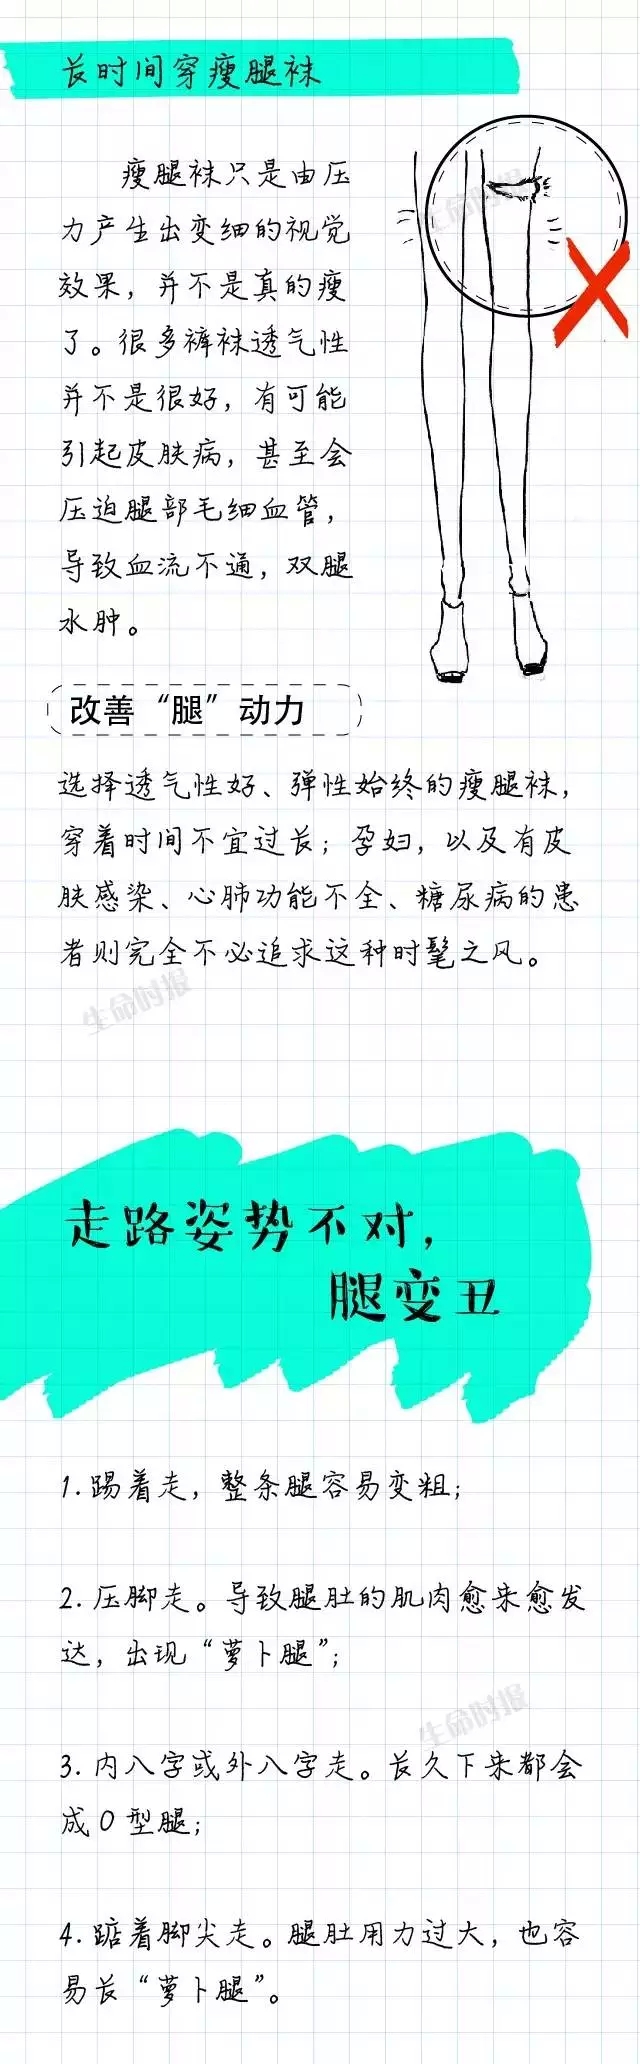 长时间穿瘦腿袜
瘦腿袜只是由压
力产生出变细的视觉
效果，并不是真的瘦
了。很多裤袜透气性
并不是很好，有可能
引起皮肤病，甚至会
压迫腿部毛细血管，
导致血流不通，双腿
水肿。
生命时报
改善“腿”动力
选择透气性好、弹性始终的瘦腿袜，
穿着时间不宜过长；孕妇，以及有皮
肤感染、心肺功能不全、糖尿病的患
者则完全不必追求这种时髦之风。
生命时报
走路姿势不对，
腿变丑
1. 踢着走，整条腿容易变粗；
2. 压脚走。导致腿肚的肌肉愈来愈发
达，出现“萝卜腿”；
生命时报
3. 内八字或外八字走。长久下来都会
成O型腿；
4. 踮着脚尖走。腿肚用力过大，也容
易长“萝卜腿”。